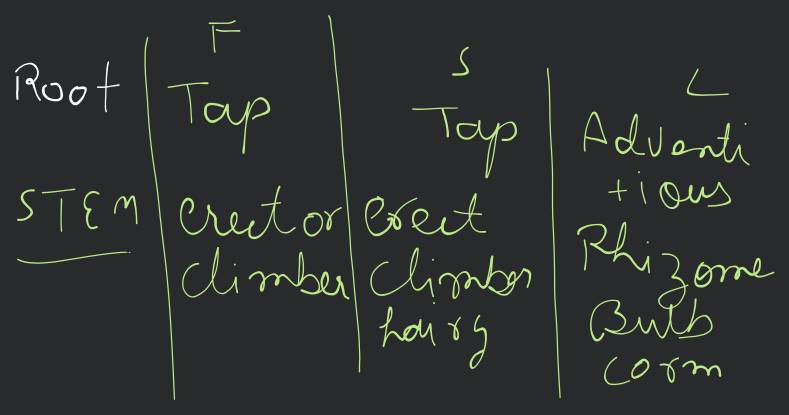 F S L
Root Tap Tap Adventi
tious
STEM Erect or Erect Rhizome
climber climber Bulb
hairy corm